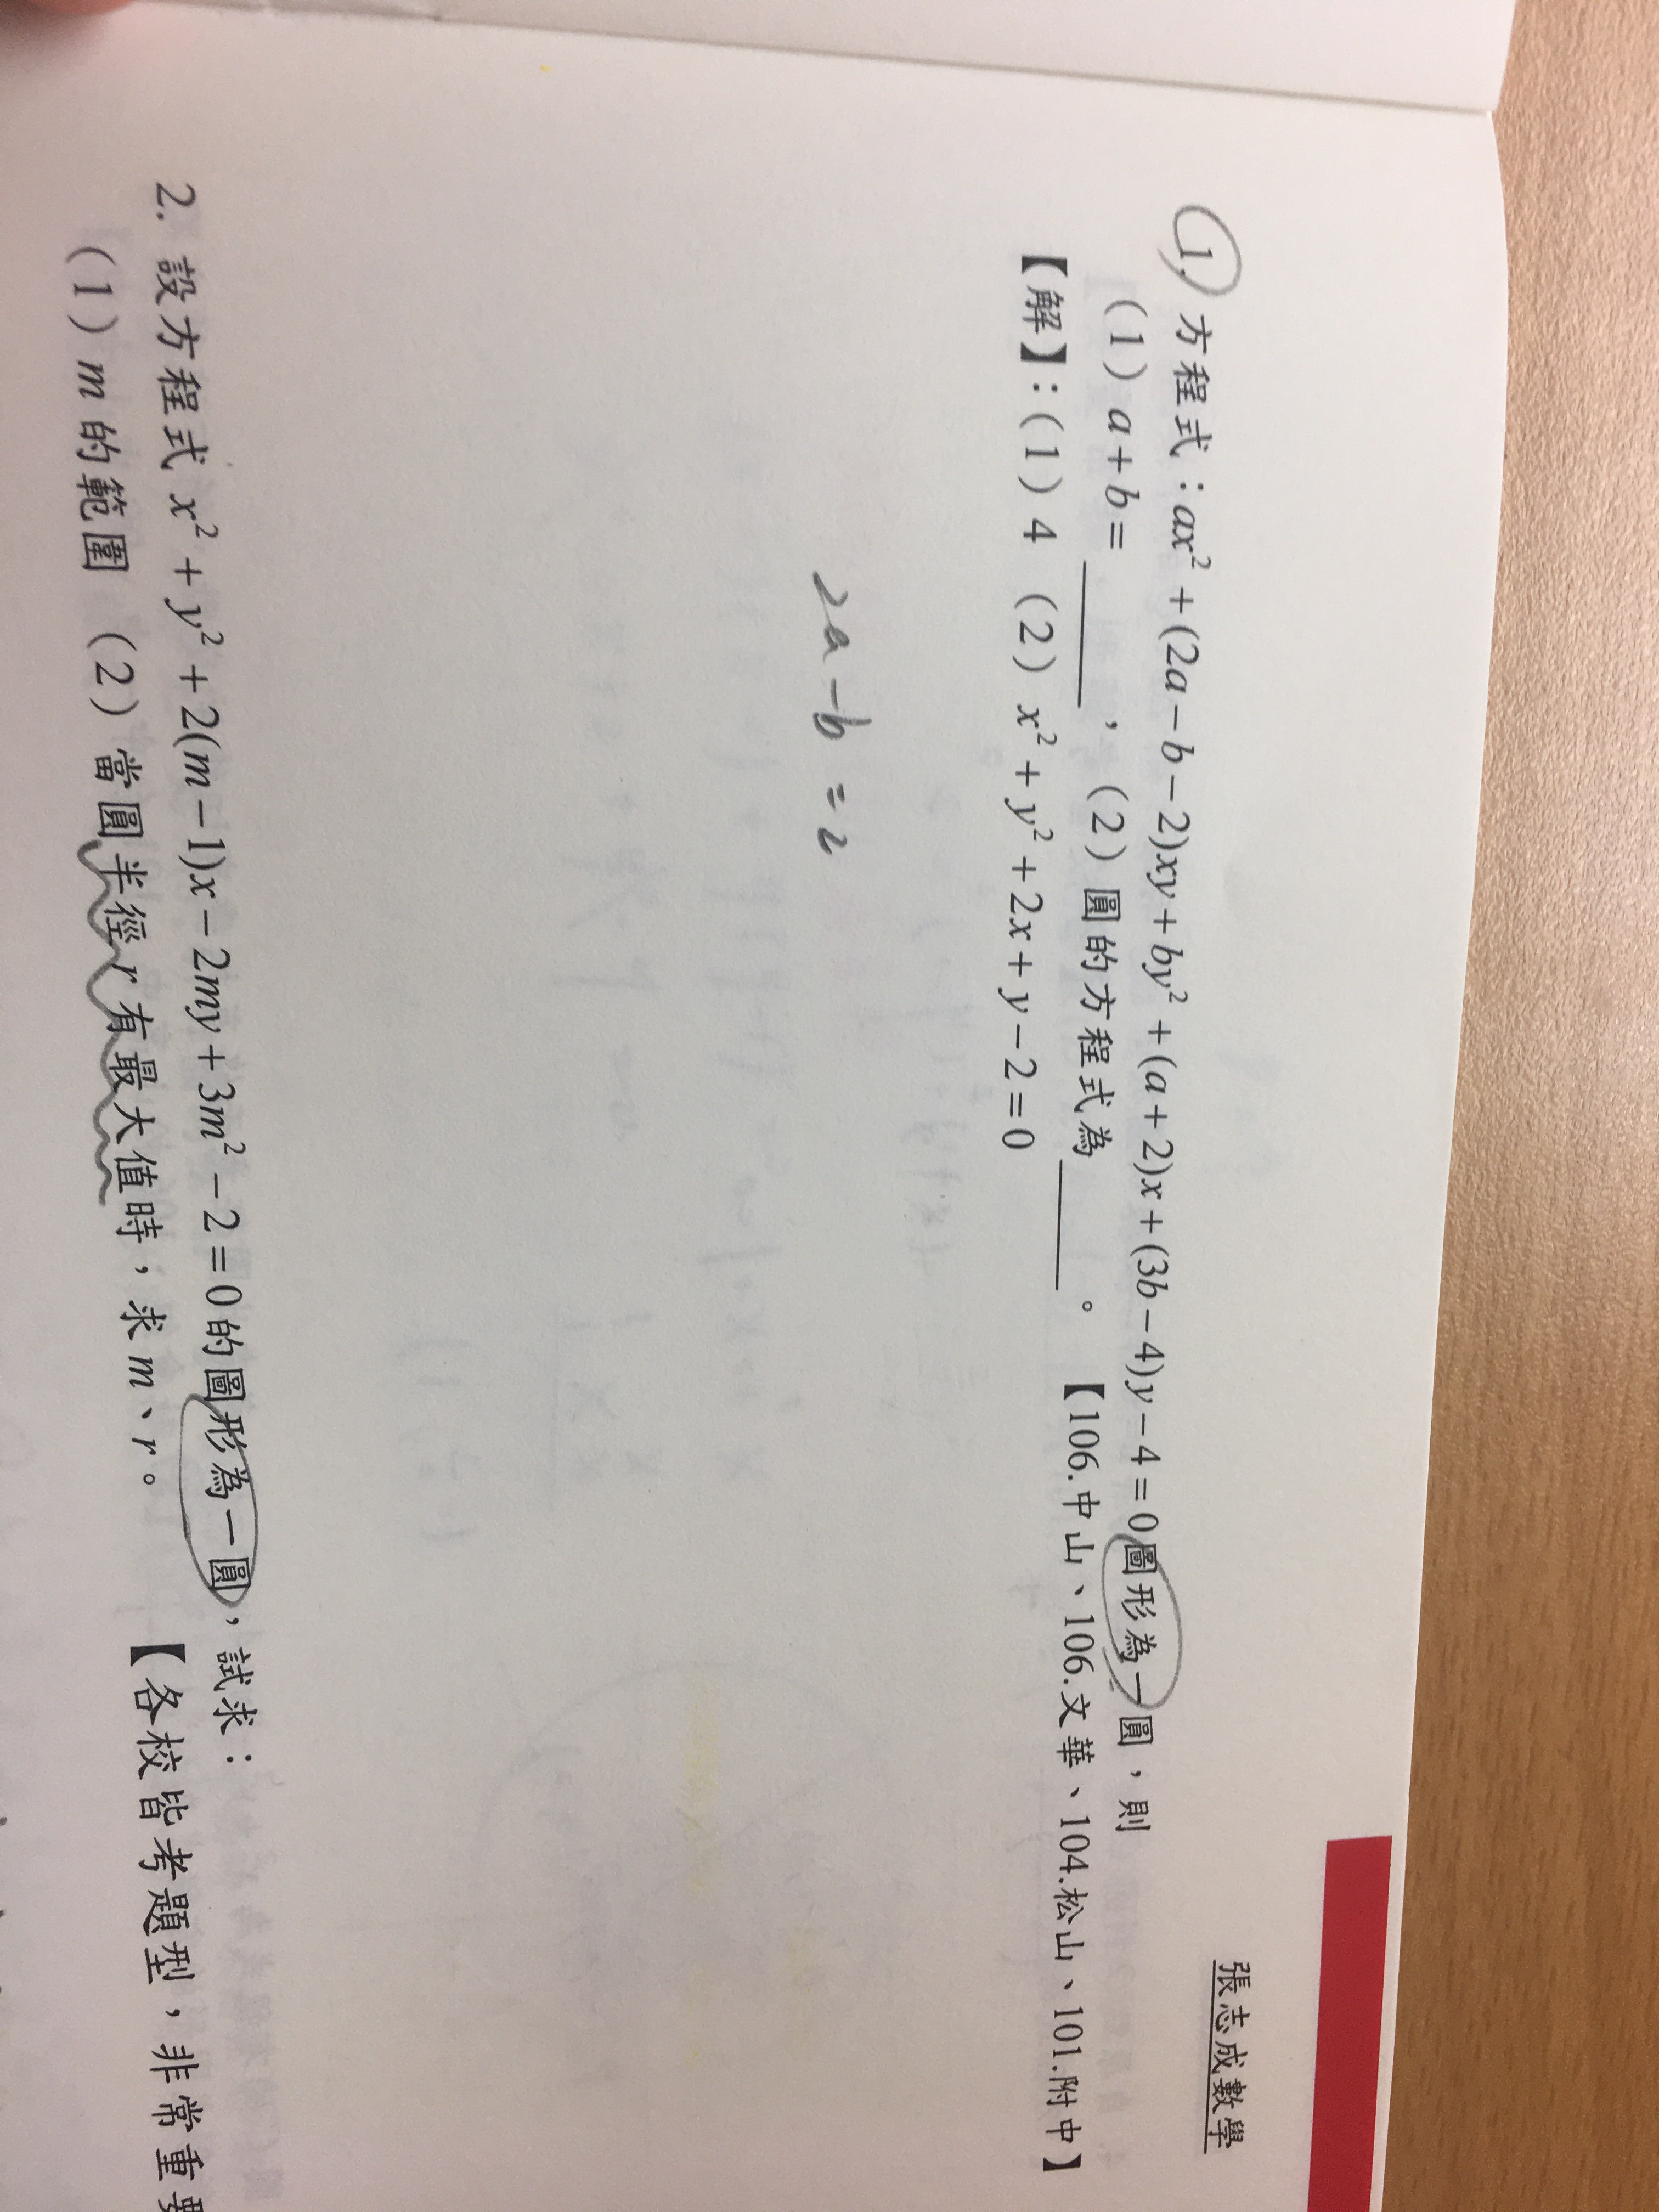 張志成數學
1. 方程式：ax²+(2a−b−2)xy+by²+(a+2)x+(3b−4)y−4=0圖形為一圓，則
(1) a+b=______，(2) 圓的方程式為______。【106.中山、106.文華、104.松山、101.附中】
【解】：(1) 4 (2) x²+y²+2x+y−2=0
2a−b=2
2. 設方程式 x²+y²+2(m−1)x−2my+3m²−2=0的圖形為一圓，試求：
(1) m的範圍 (2) 當圓半徑r有最大值時，求m、r。【各校皆考題型，非常重要